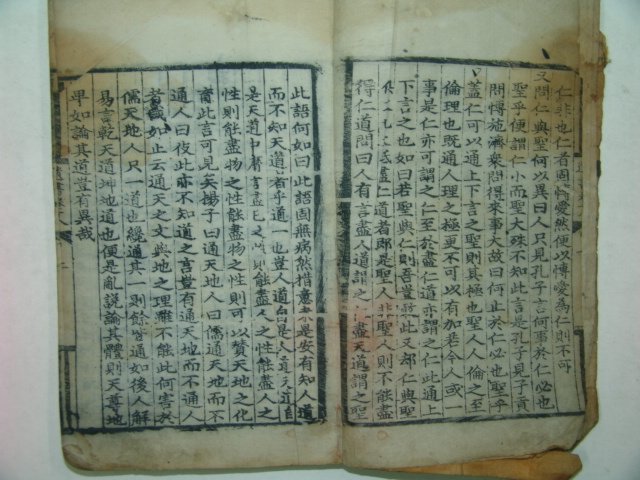 仁非也仁者固博愛然便以博愛為仁則不可
又問仁與聖何以異曰人只見孔子言何事於仁必也
聖乎便謂仁小而聖大殊不知此言是孔子見子貢
問博施濟衆問得來事大故曰何止於仁必也聖乎
盖仁可以通上下言之聖則其極也聖人人倫之至
倫理也既通人理之極更不可以有加若今人或一
事是仁亦可謂之仁至於盡仁道亦謂之仁此通上
下言之也如曰若聖與仁則吾豈敢此又却仁與聖
盡仁道者即是聖人非聖人則不能盡
得仁道問曰人有言盡人道謂之仁盡天道謂之聖
此語何如曰此語固無病然措意未是安有知人道
而不知天道者乎道一也豈人道自是人道天道自
是天道中庸言盡己之性則能盡人之性能盡人之
性則能盡物之性能盡物之性則可以贊天地之化
育此言可見矣揚子曰通天地人曰儒通天地而不
通人曰伎此亦不知道之言豈有通天地而不通人
者哉如止云通天之文與地之理雖不能此何害於
儒天地人只一道也纔通其一則餘皆通如後人解
易言乾天道坤地道也便是亂説論其體則天尊地
卑如論其道豈有異哉